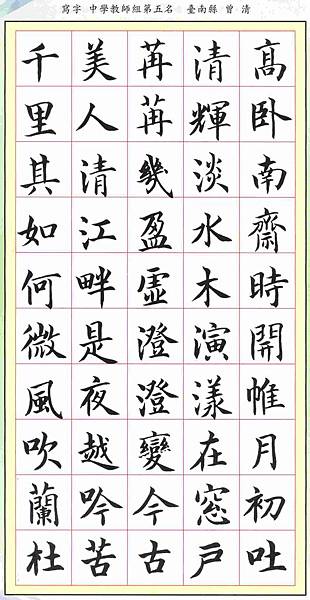 寫字 中學教師組第五名 臺南縣 曾 清
高卧南齋時開帷月初吐
清輝淡水木演漾在窗戶
苒苒幾盈虛澄澄變今古
美人清江畔是夜越吟苦
千里其如何微風吹蘭杜